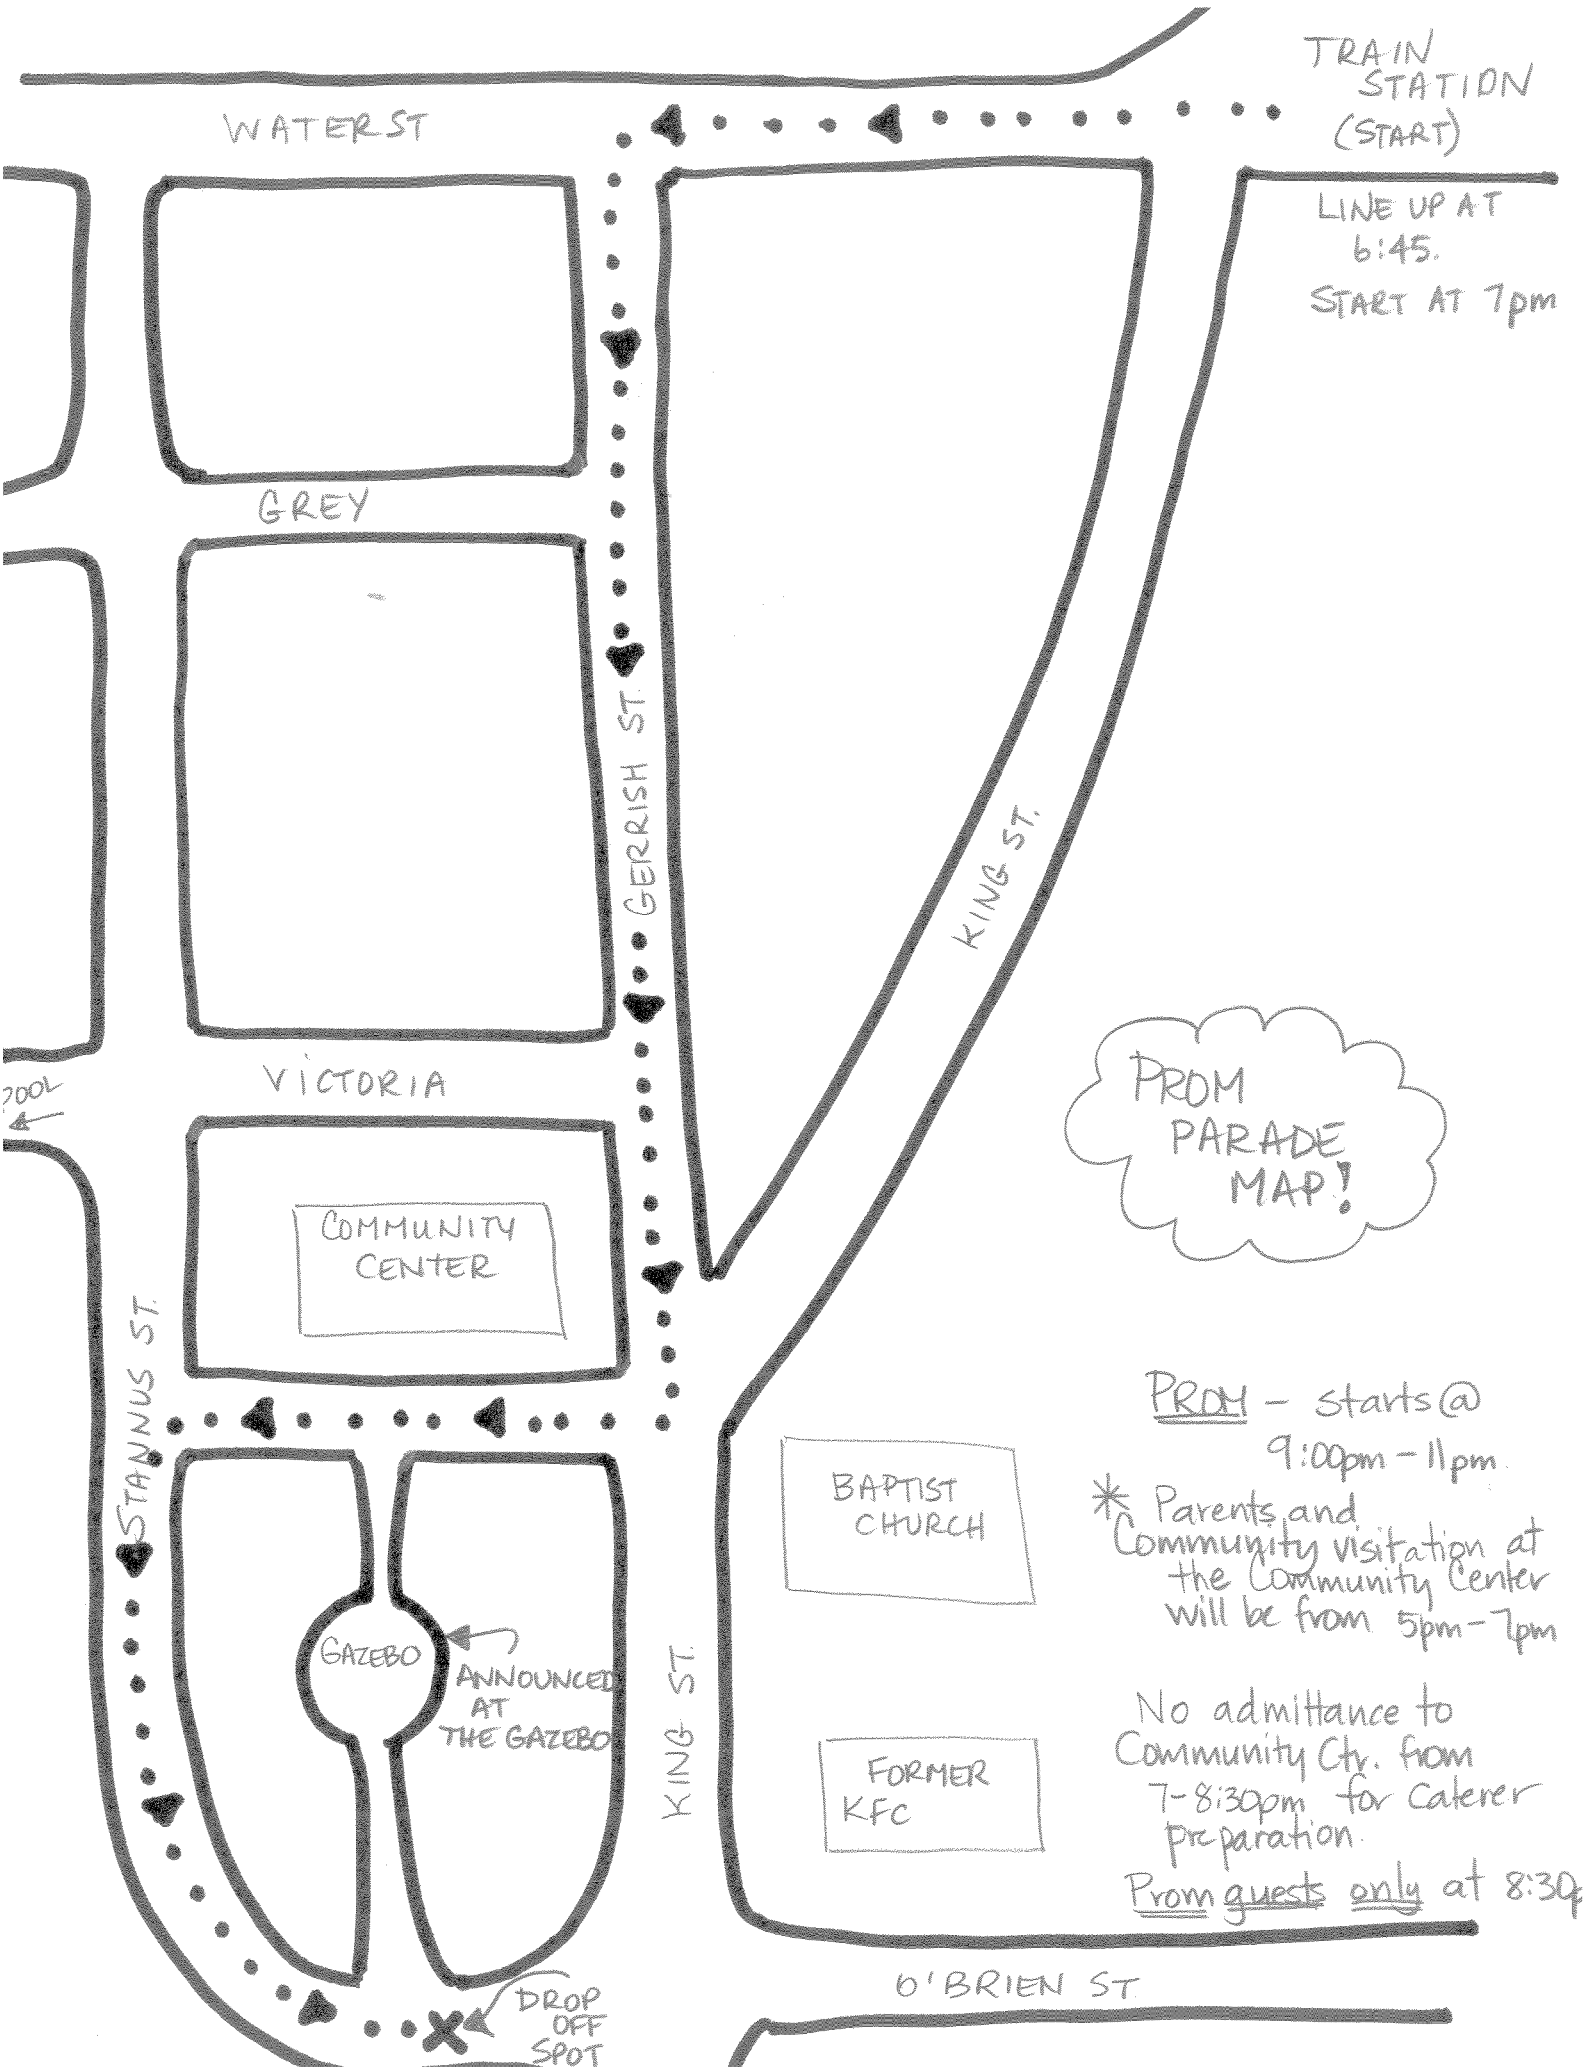 TRAIN
STATION
(START)
WATER ST
LINE UP AT
6:45.
START AT 7pm
GREY
GERRISH ST.
KING ST.
VICTORIA
POOL
PROM
PARADE
MAP!
COMMUNITY
CENTER
STANNUS ST.
PROM - starts@
9:00pm-11pm
BAPTIST
CHURCH
* Parents and
Community visitation at
the Community Center
will be from 5pm-7pm
GAZEBO
ANNOUNCED
AT
THE GAZEBO
KING ST.
FORMER
KFC
No admittance to
Community Ctr. from
7-8:30pm for Caterer
preparation.
Prom guests only at 8:30p
O'BRIEN ST
DROP
OFF
SPOT